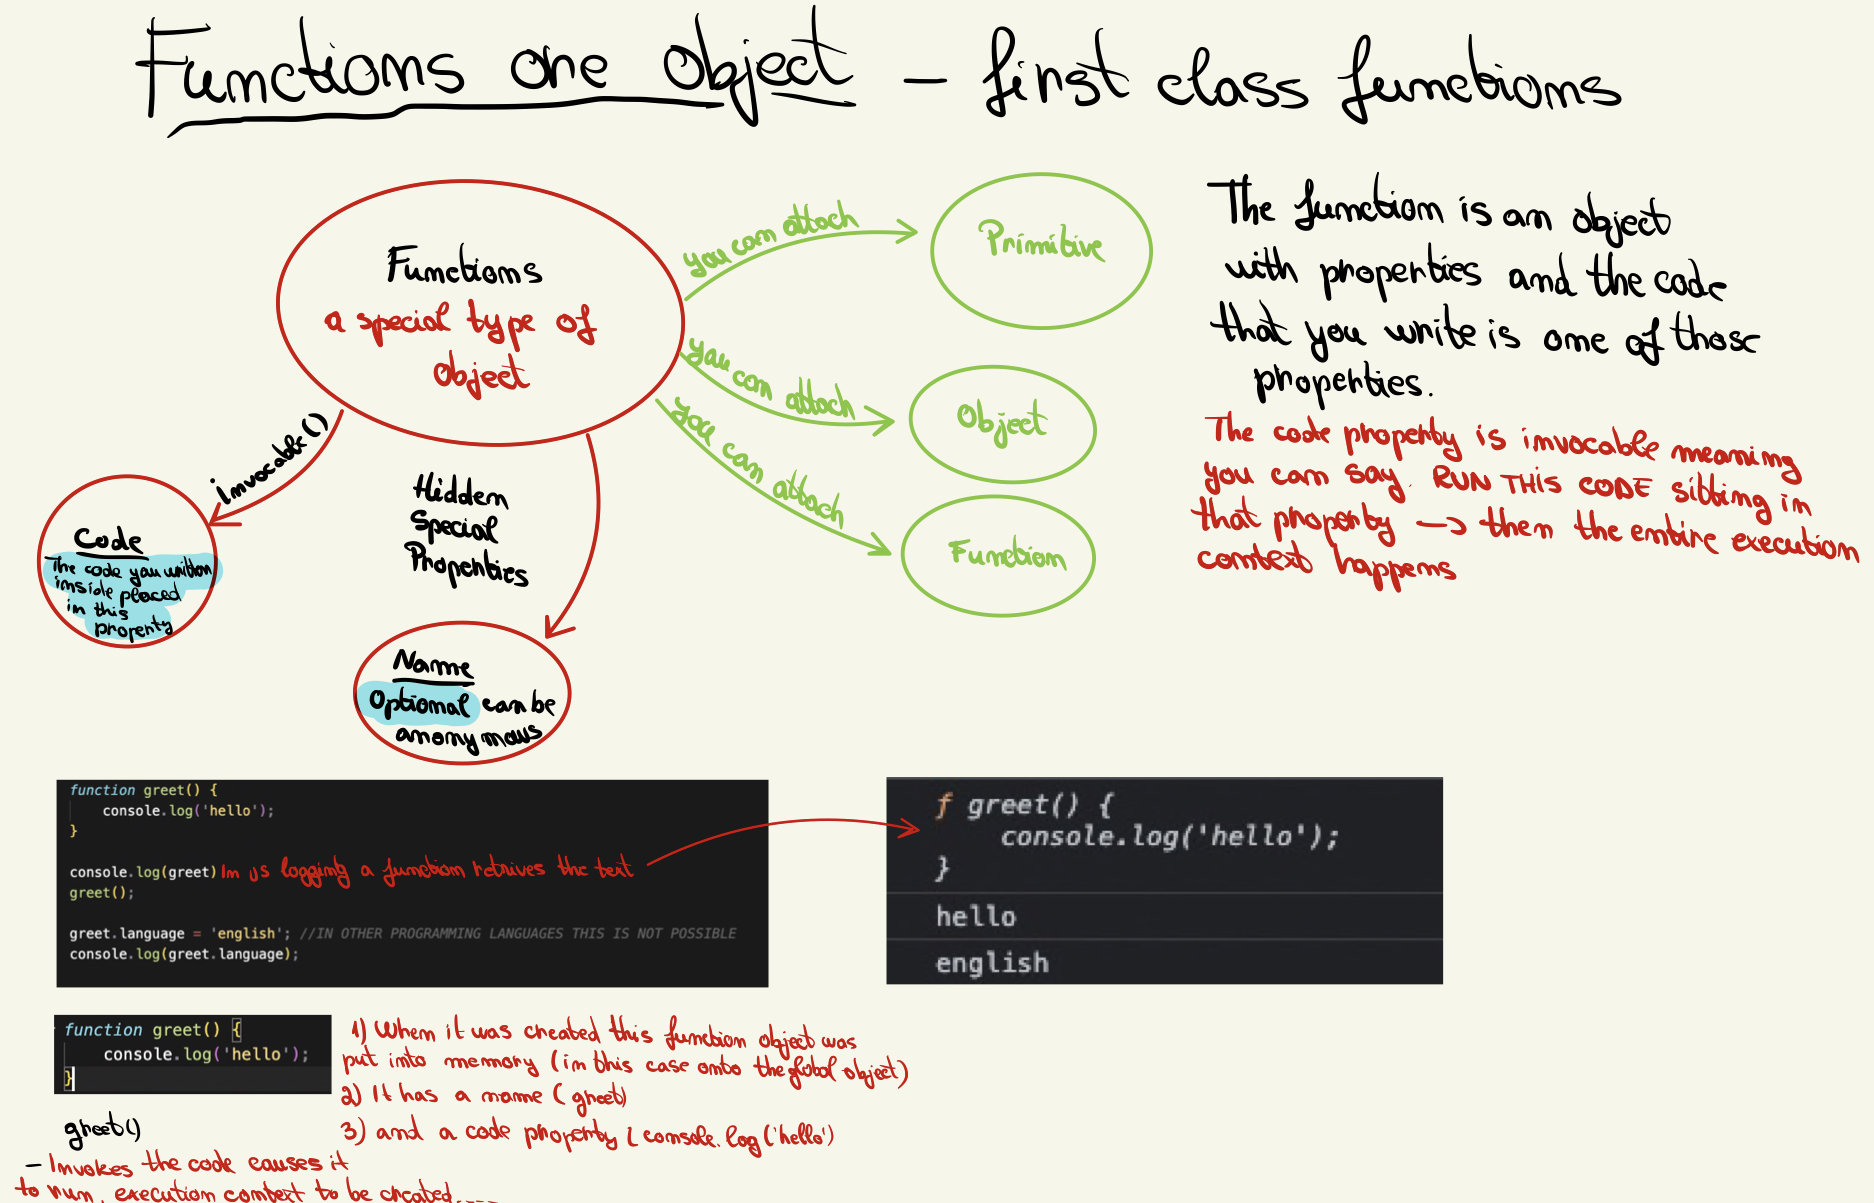 Functions are object - first class functions
Functions
a special type of
object
you can attach
Primitive
you can attach
Object
you can attach
Function
invocable()
Code
The code you written
inside placed
in this
property
Hidden
Special
Properties
Name
Optional can be
anonymous
The function is an object
with properties and the code
that you write is one of those
properties.
The code property is invocable meaning
you can say. RUN THIS CODE sitting in
that property -> then the entire execution
context happens
function greet() {
console.log('hello');
}
console.log(greet) In JS logging a function retrives the text
greet();
greet.language = 'english'; //IN OTHER PROGRAMMING LANGUAGES THIS IS NOT POSSIBLE
console.log(greet.language);
ƒ greet() {
console.log('hello');
}
hello
english
function greet() {
console.log('hello');
}
1) When it was created this function object was
put into memory (in this case onto the global object)
2) It has a name (greet)
3) and a code property (console.log('hello')
greet()
- Invokes the code causes it
to run, execution context to be created....